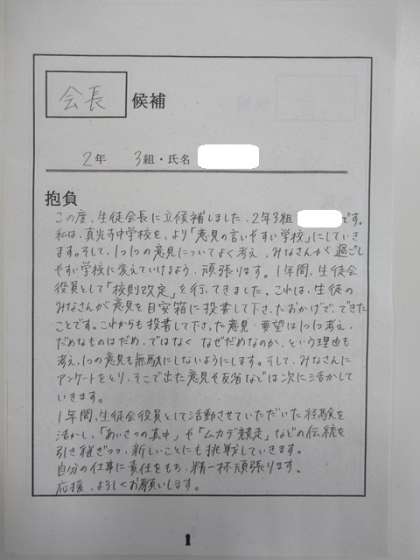 会長 候補
2年 3組・氏名
抱負
この度、生徒会長に立候補しました、2年3組 です。
私は、真光寺中学校を、より「意見の言いやすい学校」にしていき
ます。そして、1つ1つの意見についてよく考え、みなさんが過ごし
やすい学校に変えていけるよう、頑張ります。1年間、生徒会
役員として「校則改定」を行ってきました。これは、生徒の
みなさんが意見を目安箱に投書して下さったおかげで、できた
ことです。これからも投書して下さった意見・要望は1つ1つ考え、
だめなものはだめ、ではなく なぜだめなのか、という理由も
考え、1つの意見も無駄にしないようにします。そして、みなさんに
アンケートをとり、そこで出た意見や反省などは次に活かして
いきます。
1年間、生徒会役員として活動させていただいた経験を
活かし、「あいさつの真中」や「ムカデ競走」などの伝統を
引き継ぎつつ、新しいことにも挑戦していきます。
自分の仕事に責任をもち、精一杯頑張ります。
応援、よろしくお願いします。
1